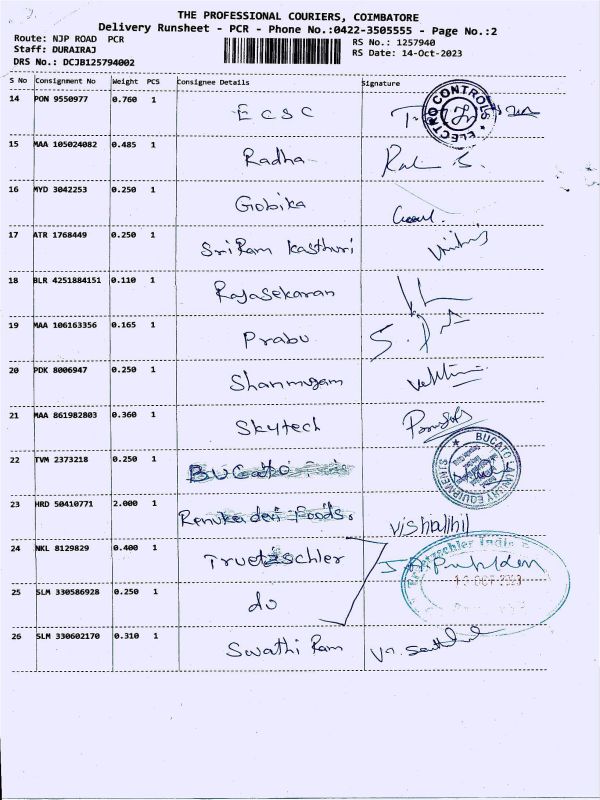 THE PROFESSIONAL COURIERS, COIMBATORE
Delivery Runsheet - PCR - Phone No.:0422-3505555 - Page No.:2
Route: NJP ROAD PCR
RS No.: 1257940
Staff: DURAIRAJ
RS Date: 14-Oct-2023
DRS No.: DCJB125794002
S No Consignment No Weight PCS Consignee Details Signature
14 PON 9550977 0.760 1 ECSC
ELECTRO CONTROLS
15 MAA 105024082 0.485 1 Radha
16 MYD 3042253 0.250 1 Gobika
17 ATR 1768449 0.250 1 SriRam Kasthuri
18 BLR 4251884151 0.110 1 Rajasekaran
19 MAA 106163356 0.165 1 Prabu
20 PDK 8006947 0.250 1 Shanmugam
21 MAA 861982803 0.360 1 Skytech
22 TVM 2373218 0.250 1 Bucato
BUCATO EQUIPMENTS
23 HRD 50410771 2.000 1 Renukadevi Foods.
24 NKL 8129829 0.400 1 Truetzschler
25 SLM 330586928 0.250 1 do
26 SLM 330602170 0.310 1 Swathi Ram